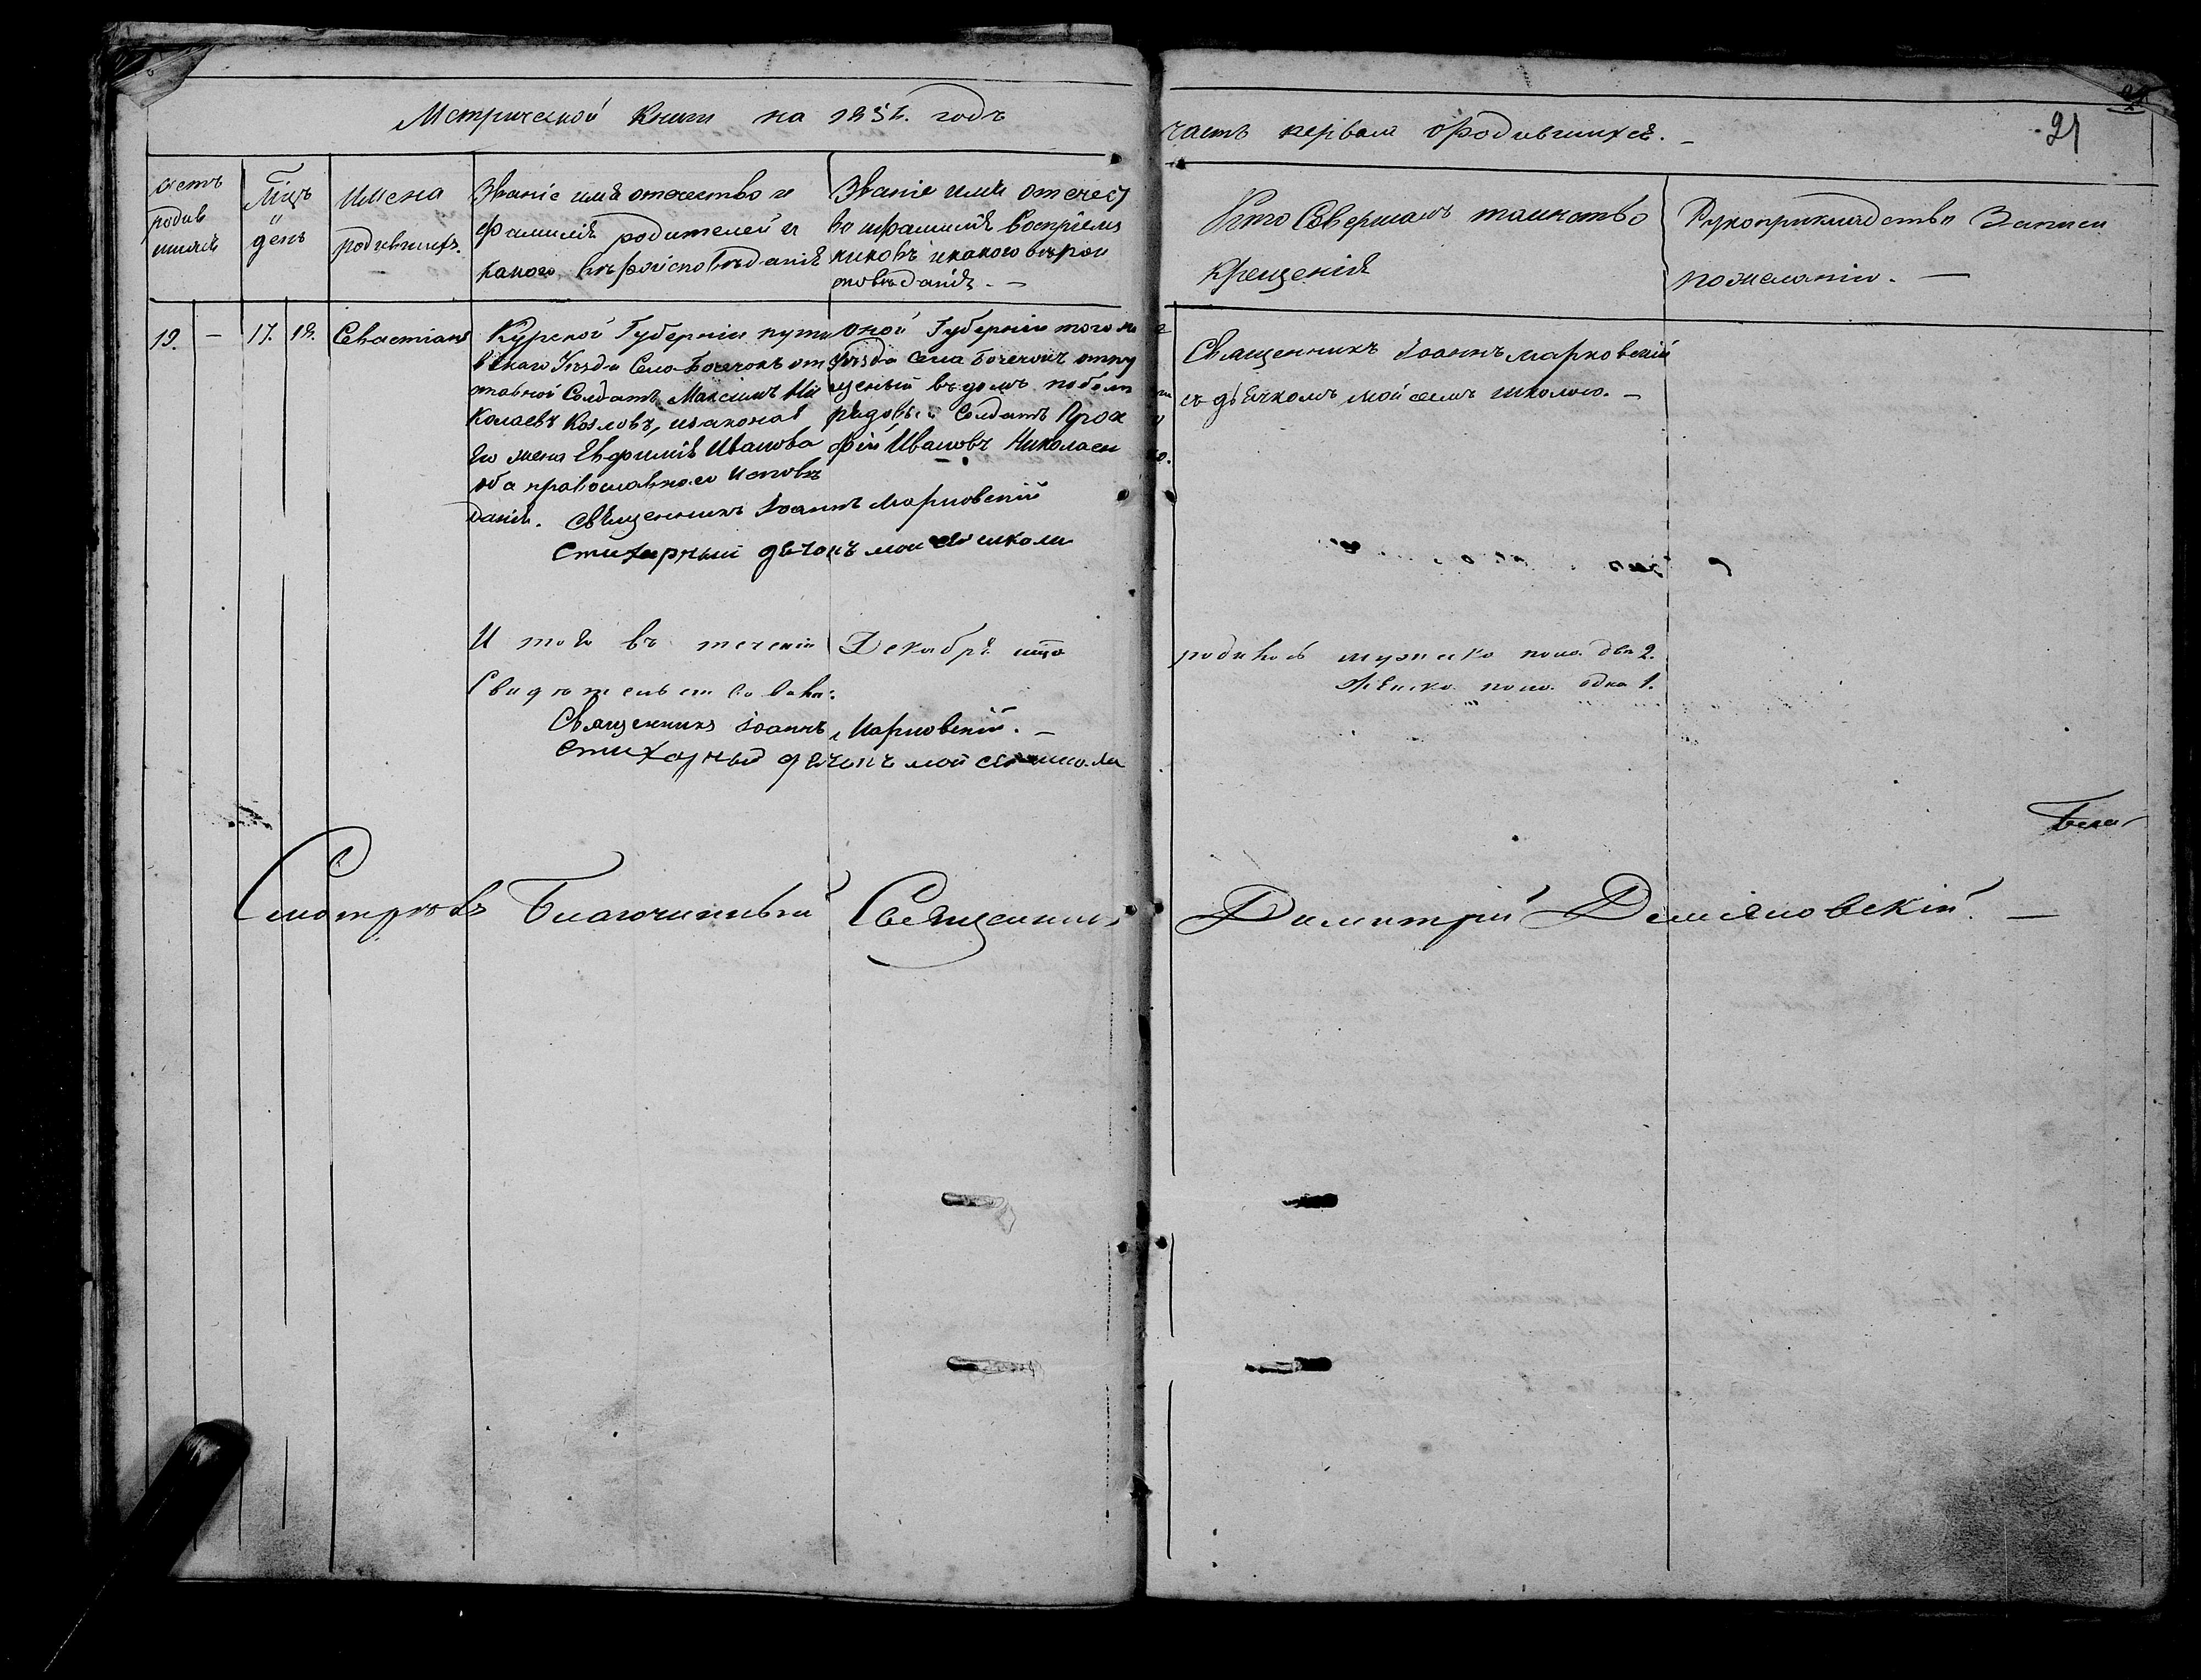 Метрической книги на 1851. годъ
часть первая о родившихся. –
21
счетъ
родив
шихся
Мцъ
и
день
имена
родивших.
Званіе имя отечество и
фамилія родителей и
какого вѣроисповѣданія
Званіе имя отечест
во и фамилія воспріем
никовъ и какого вѣрои
сповѣданія. –
Кто совершалъ таинство
крещенія
Рукоприкладство записи
по желанію. –
19. – 17. 18. Севастіанъ
Курской Губерніи пути
вскаго Уѣзда Села Бочечокъ от
ставной Солдатъ Максимъ Ни
колаевъ Козловъ, и законая
его жена Евфимія Иванова
оба православнаго исповѣ
данія.
оной Губерніи того же
Уѣзда села Бочечокъ отпу
щеный въ домъ
рядовый Солдатъ Прок
фій Ивановъ Николаен
ко.
Священникъ Іоаннъ Марковскій
съ дьячкомъ Мойсеемъ школою. –
Священникъ Іоаннъ Марковскій
Стихарный дьячокъ Мойсей школа
И того въ теченіи Декабря мца
родилось мужеско пола два 2.
женско пола одна 1.
Свидетельствовали:
Священникъ Іоаннъ Марковскій. –
Стихарный дьячокъ Мойсей школа
Благо
Смотрѣлъ Благочинный Священникъ Димитрій Демяновскій. –